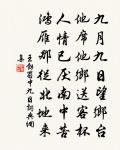 九月九日望鄉臺
他席他鄉送客杯
人情已厭南中苦
鴻雁那從北地來
王勃蜀中九日詞典網
集